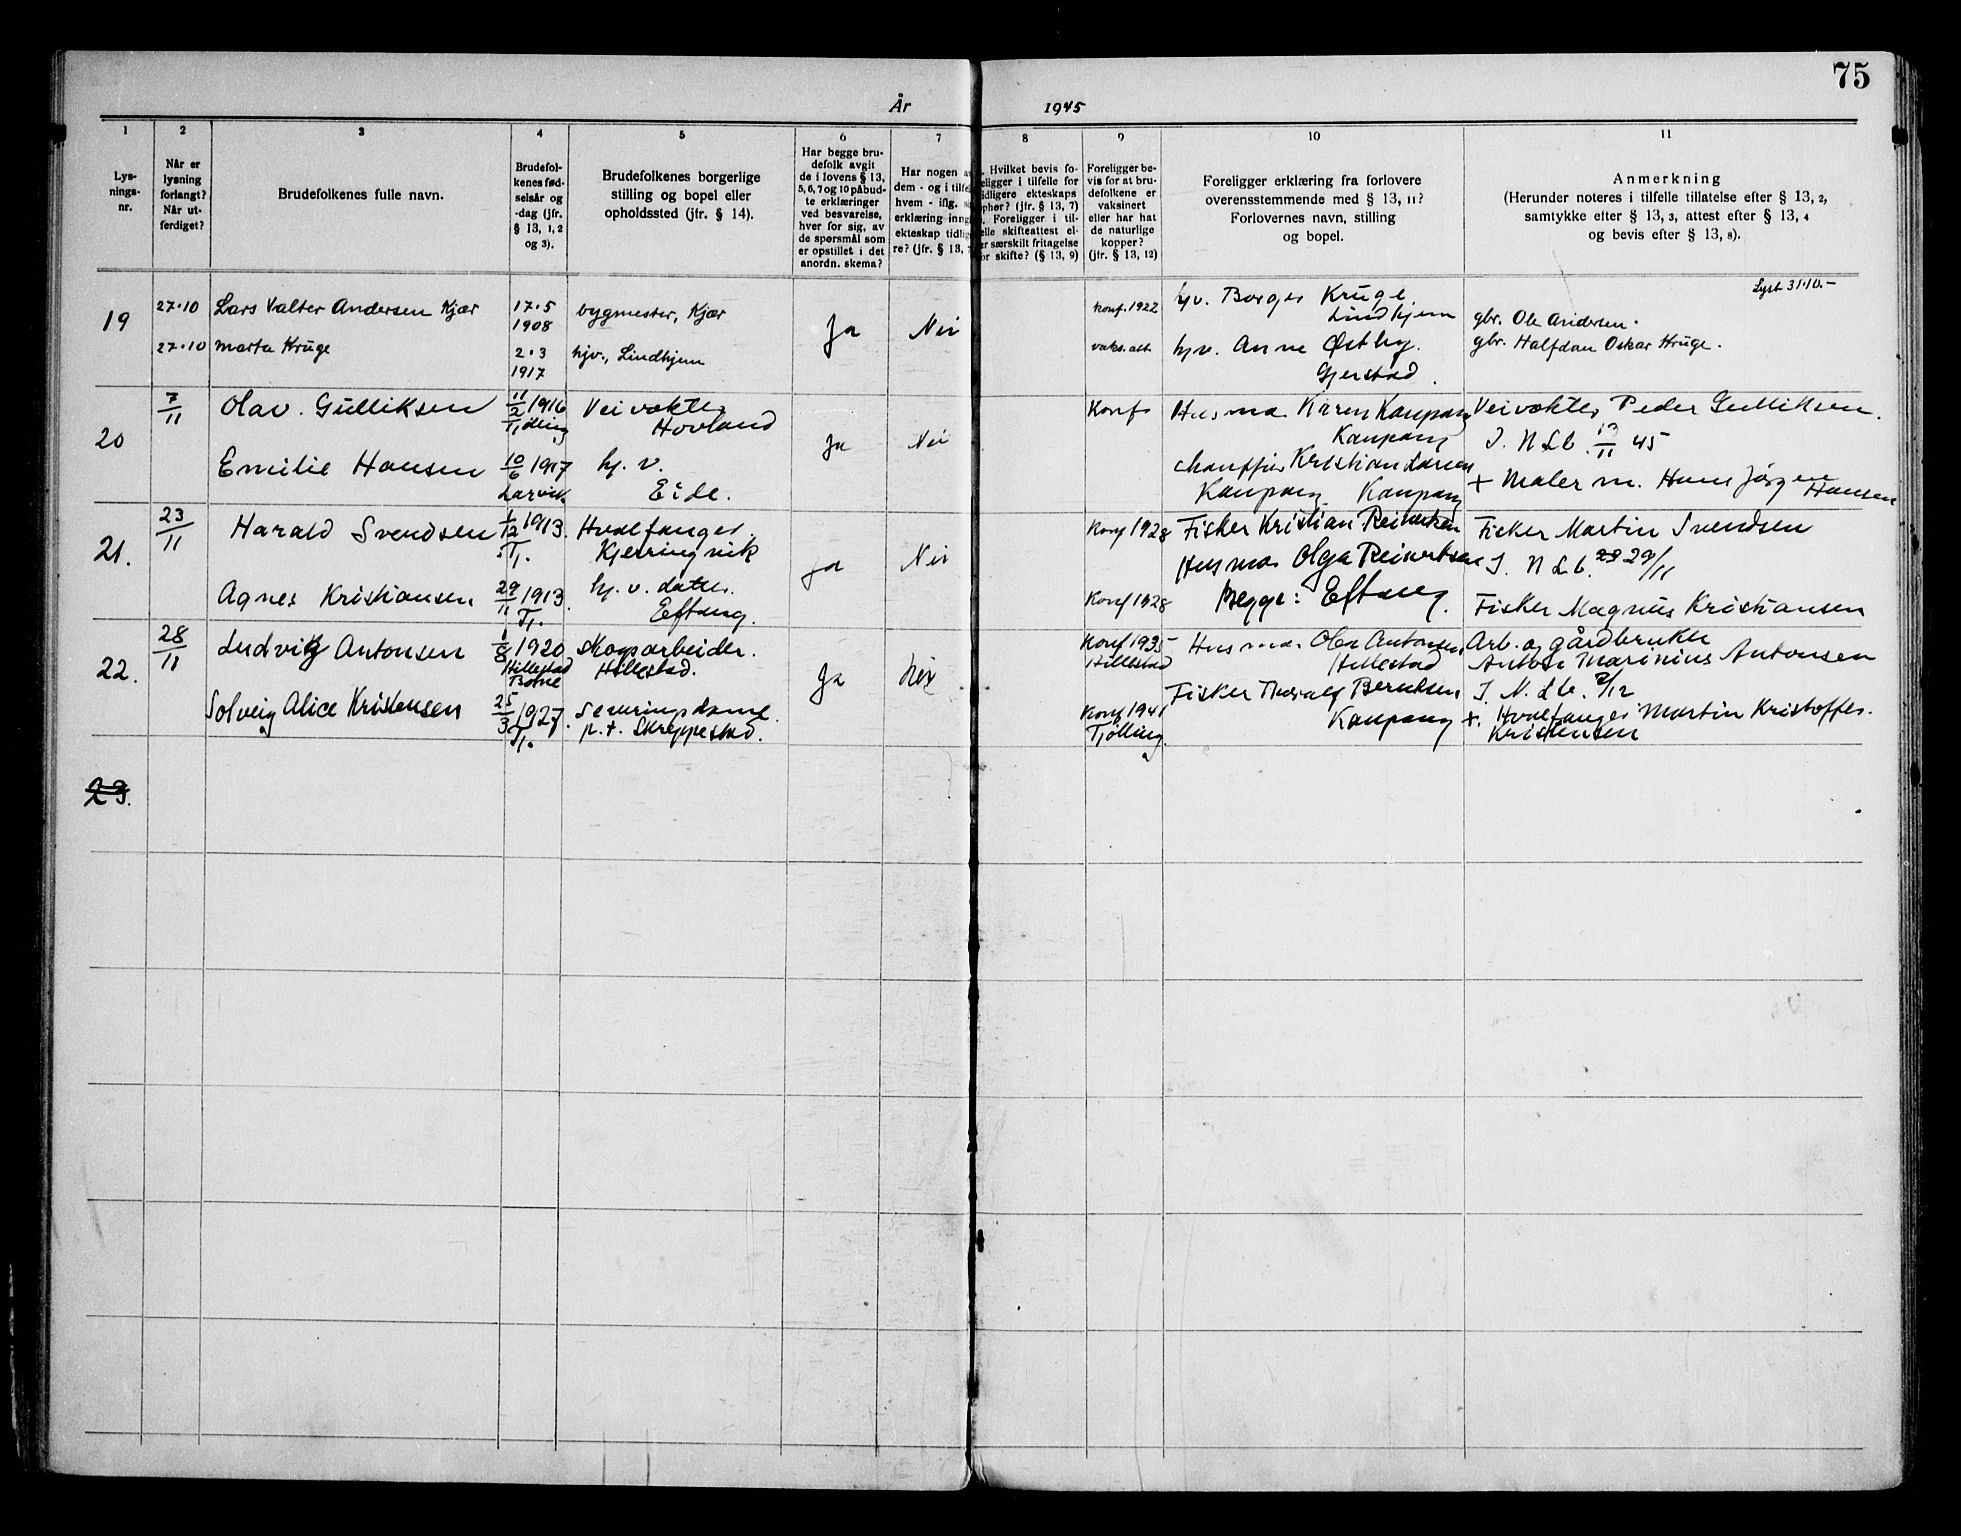 75
År 1945
1
2
3
4
5
6
7
8
9
10
11
Lys-
nings-
nr.
Når er
lysning
forlangt?
Når ut-
ferdiget?
Brudefolkenes fulle navn.
Brudefol-
kenes fød-
selsår og
-dag (jfr.
§ 13, 1, 2
og 3).
Brudefolkenes borgerlige
stilling og bopel eller
opholdssted (jfr. § 14).
Har begge bru-
defolk avgit
de i lovens § 13,
5, 6, 7 og 10 påbud-
te erklæringer
ved besvarelse,
hver for sig, av
de spørsmål som
er opstillet i det
anordn. skema?
Har nogen a
dem - og i tilfe
hvem - iflg. s
erklæring inng
ekteskap tidlig
re? (jfr. § 13, 7
Hvilket bevis fo-
eligger i tilfelle for
idligere ekteskaps
phør? (jfr. § 13, 7)
Foreligger i til-
elle skifteattest el-
er særskilt fritagelse
or skifte? (§ 13, 9)
Foreligger be-
vis for at bru-
defolkene er
vaksinert
eller har hat
de naturlige
kopper?
(jfr. § 13, 12)
Foreligger erklæring fra forlovere
overensstemmende med § 13, 11?
Forlovernes navn, stilling
og bopel.
Anmerkning
(Herunder noteres i tilfelle tillatelse efter § 13, 2,
samtykke efter § 13, 3, attest efter § 13, 4
og bevis efter § 13, 8).
19
27·10 Lars Valter Andersen Kjær
17·5
1908
bygmester, Kjær
27·10 Marta Kruge
2·3
1917
hjv., Lindhjem
Ja
Nei
konf. 1922
vaks.att.
hjv. Borger Kruge
Lindhjem
hjv. Anne Østby.
Gjerstad.
Lyst 31·10.-
gbr. Ole Andersen.
gbr. Halfdan Oskar Kruge.
20
7/11
Olav. Gulliksen
11/2 1916
Tjølling
Veivokter
Hovland
Emilie Hansen
10/6 1917
Larvik
hj. v.
Eide.
Ja
Nei
Konf
Husmor Karen Kaupang
Kaupang
chauffør Kristian Larsen
Kaupang Kaupang
Veivokter Peder Gulliksen.
J. N Lb. 13/11 45
+ Maler m. Hans Jørgen
Hansen
21.
23/11
Harald Svendsen
1/12 1913.
Tj.
Hvalfanger.
Kjerringvik
Agnes Kristiansen
29/11 1913.
Tj.
hj. v. datter.
Eftang.
Ja
Nei
Konf 1928
Konf 1928
Fisker Kristian Reinertsen
Husmor Olga Reinertsen
Begge: Eftang.
Fisker Martin Svendsen
J. N Lb. 29/11
Fisker Magnus Kristiansen
22.
28/11
Ludvig Antonsen
1/8 1920
Hillestad
Botne
Skogsarbeider.
Hillestad.
Solveig Alice Kristensen
25/3 1927.
Tj.
Servringsdame
p.t. Skreppestad.
Ja
Nei
Konf 1935
Hillestad
Konf 1941
Tjølling.
Husmor Olea Antonsen
Hillestad
Fisker Thorvald Berntsen
Kaupang
Arb. og gårdbruker
Anton Marinius Antonsen
J. N. Lb. 2/12
+. Hvalfanger Martin Kristoffer.
Kristensen
23.